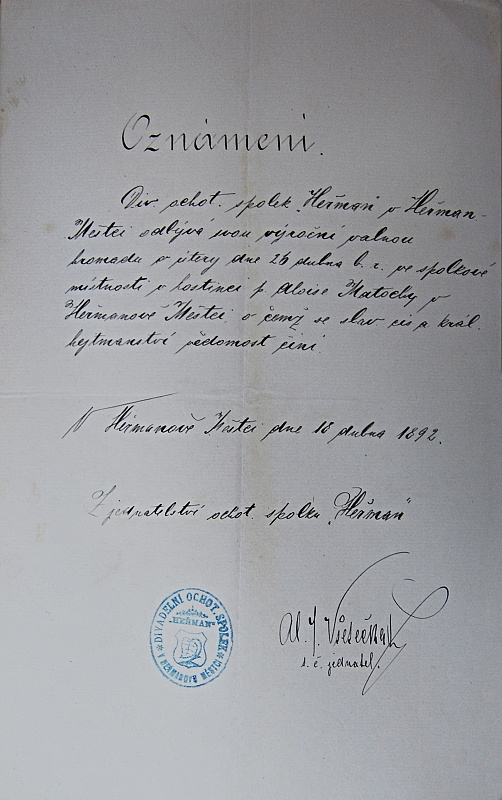 Oznámení.
Div. ochot. spolek „Heřman" v Heřman-
Městci odbývá svou výroční valnou
hromadu v úterý dne 26 dubna b. r. ve spolkové
místnosti v hostinci p. Aloise Matochy v
Heřmanově Městci o čemž se slav. cis. a král.
hejtmanství vědomost činí.
V Heřmanově Městci dne 18 dubna 1892.
Z jednatelství ochot. spolku „Heřman"
DIVADELNÍ OCHOT. SPOLEK
„HEŘMAN"
V HEŘMANOVĚ MĚSTCI
Al. J. Všetečka
t. č. jednatel.